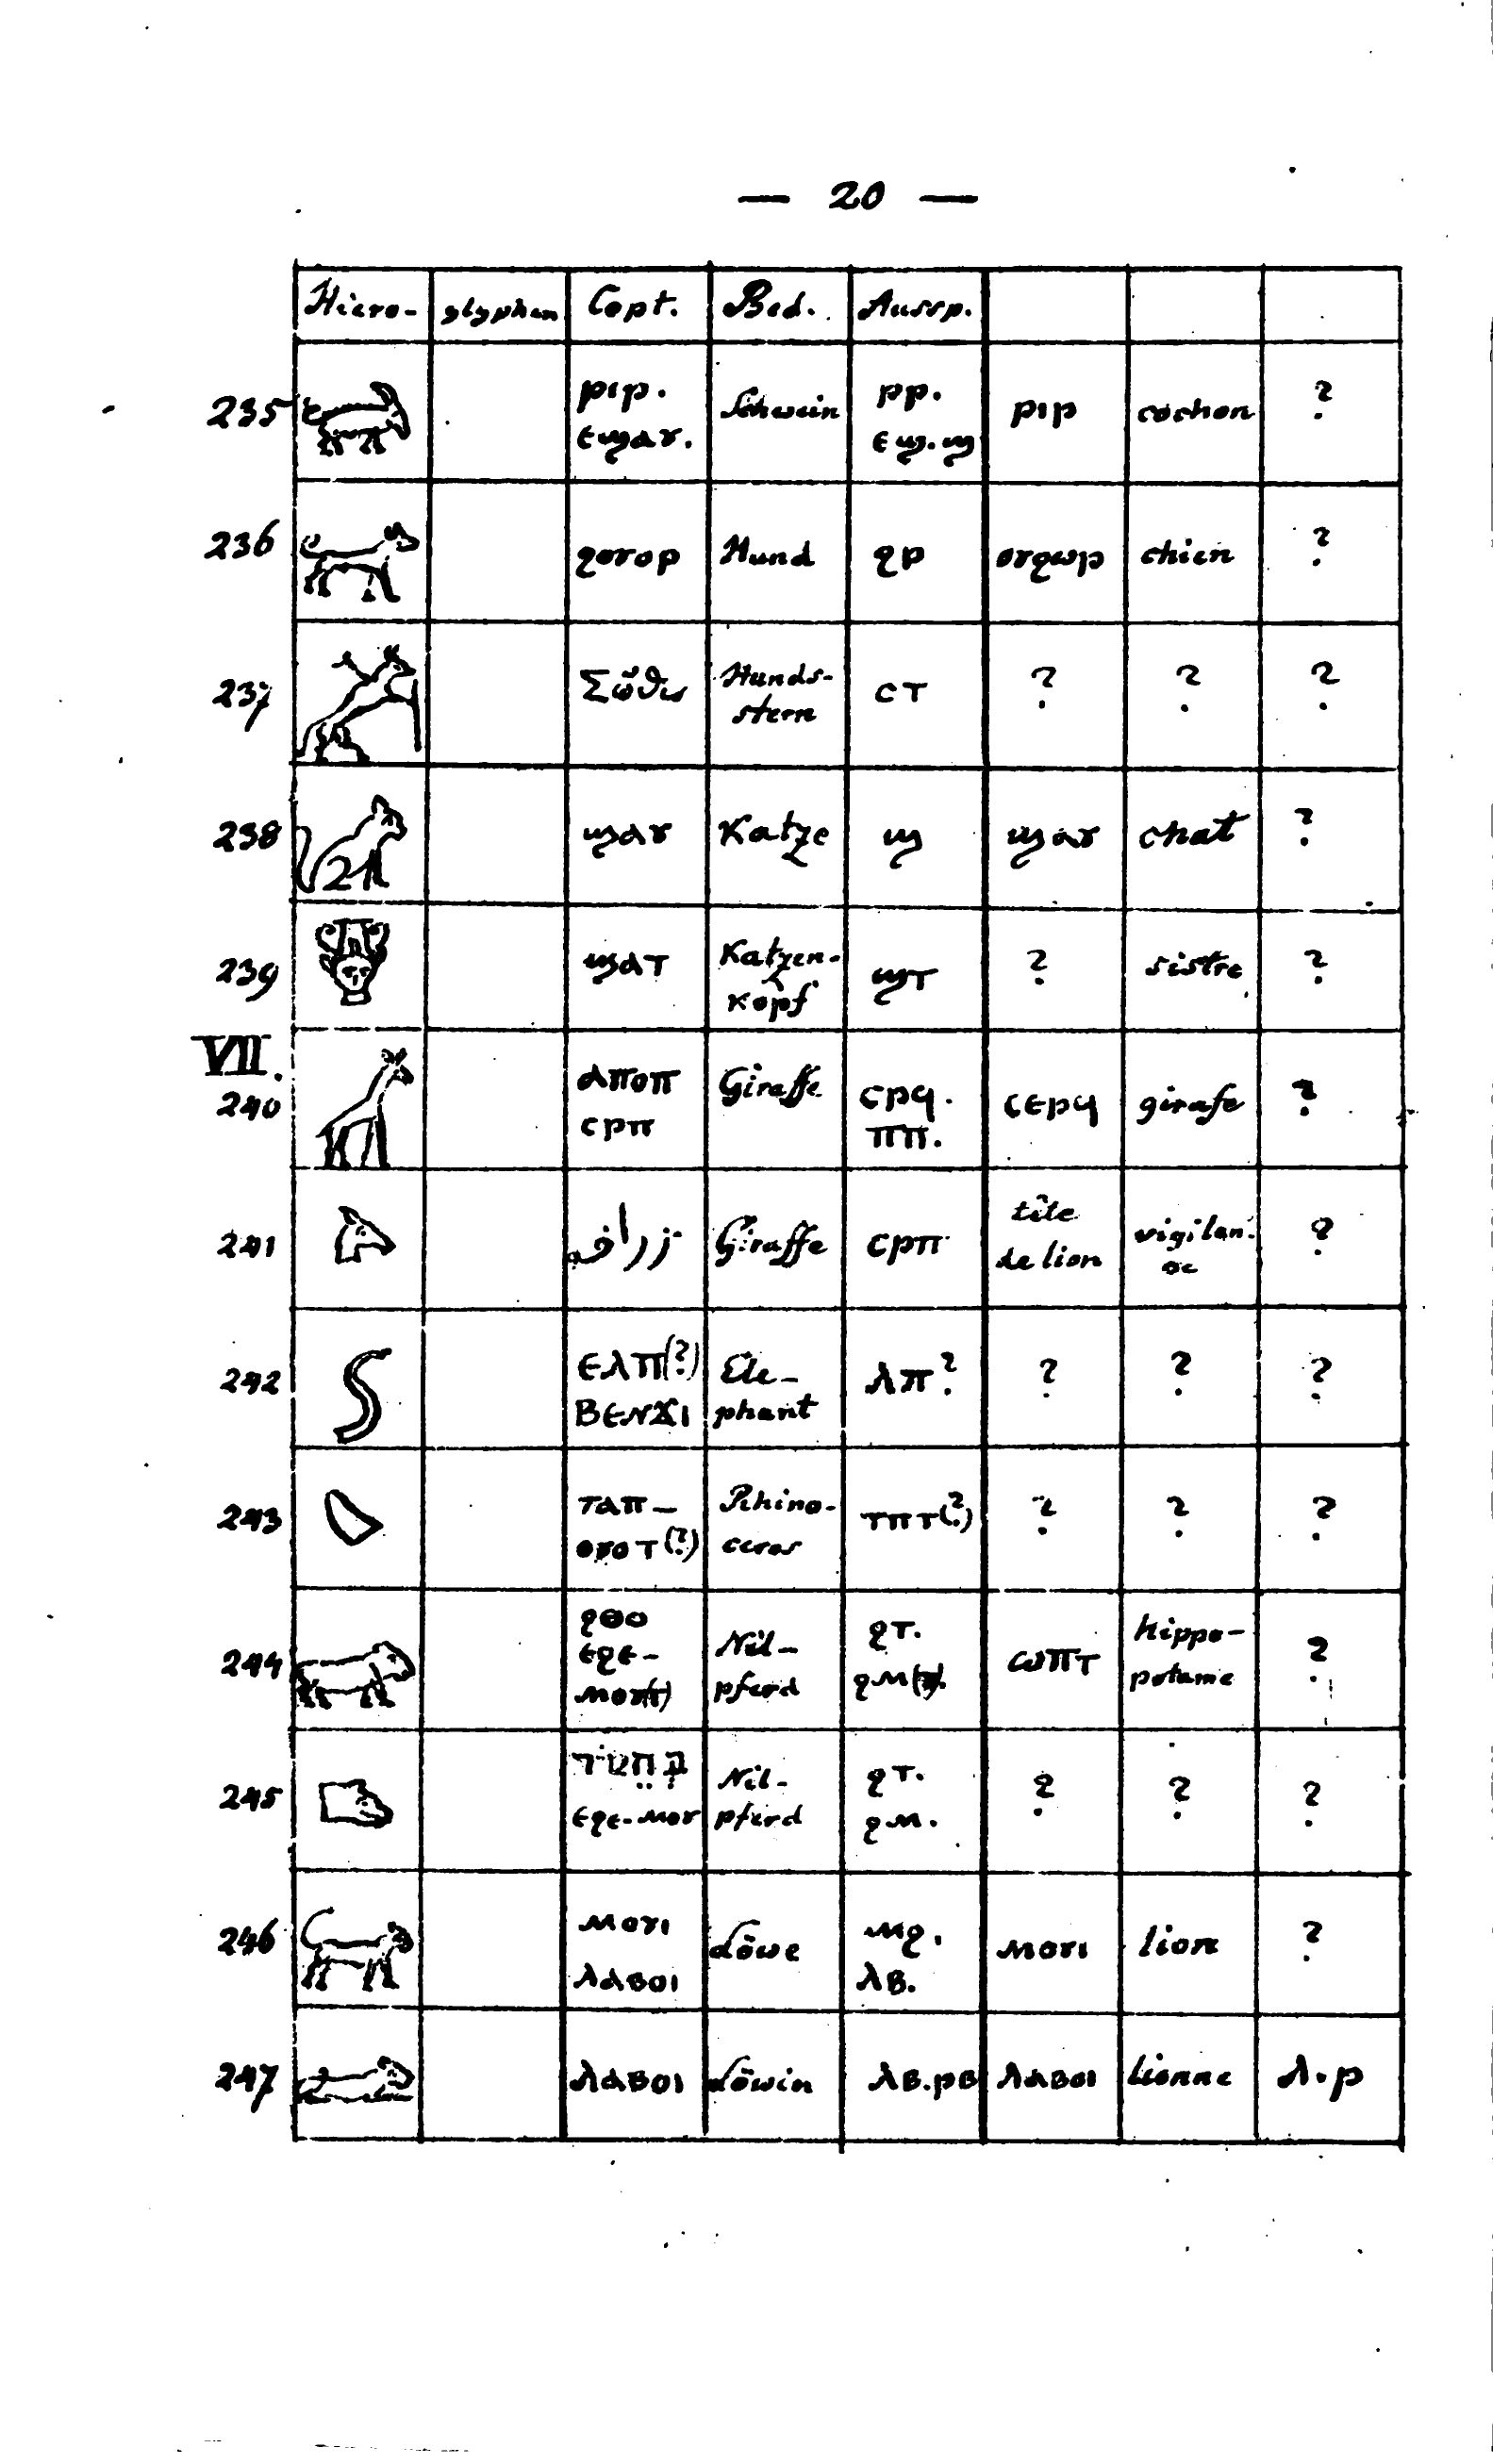 — 20 —
Hiero- glyphen Copt. Bed. Aussp.
235 ⲣⲓⲣ. ⲉϣⲁⲩ. Schwein ⲣⲣ. ⲉϣ.ϣ ⲣⲓⲣ cochon ?
236 ϩⲟⲩⲟⲣ Hund ϩⲣ ⲟⲩϩⲱⲣ chien ?
237 Σῶθις Hunds- stern ⲥⲧ ? ? ?
238 ϣⲁⲩ Katze ϣ ϣⲁⲩ chat ?
239 ϣⲁⲧ Katzen- kopf ϣⲧ ? sistre ?
VII.
240 ⲁⲡⲟⲡ ⲥⲣⲡ Giraffe ⲥⲣϥ. ⲡⲡ. ⲥⲉⲣϥ girafe ?
241 زرافه Giraffe ⲥⲣⲡ tête de lion vigilan- ce ?
242 ⲉⲗⲡ(?) ⲃⲉⲛϫⲓ Ele- phant ⲗⲡ? ? ? ?
243 ⲧⲁⲡ- ⲟⲩⲟⲧ(?) Rhino- ceros ⲧⲡⲧ(?) ? ? ?
244 ϩⲑⲟ ⲉϩⲉ- ⲙⲟⲩ(ⲧ) Nil- pferd ϩⲧ. ϩⲙ ⲱⲡⲧ hippo- potame ?
245 ⲉϩⲉ-ⲙⲟⲩ Nil- pferd ϩⲧ. ϩⲙ. ? ? ?
246 ⲙⲟⲩⲓ ⲗⲁⲃⲟⲓ Löwe ⲙϩ. ⲗⲃ. ⲙⲟⲩⲓ lion ?
247 ⲗⲁⲃⲟⲓ Löwin ⲗⲃ.ⲣⲃ ⲗⲁⲃⲟⲓ lionne ⲗ.ⲣ